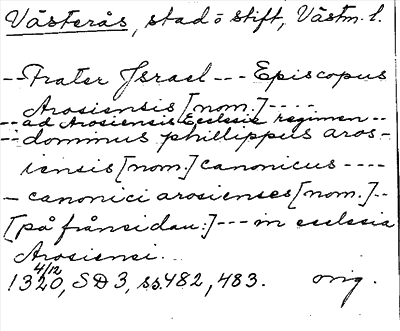 Västerås, stad o stift, Västm. l.
-- Frater Israel --- Episcopus
Arosiensis [nom.] ----
-- ad Arosiensis Ecclesie regimen --
-- dominus phillippus aros-
iensis [nom.] canonicus ----
- canonici arosienses [nom.] --
[på frånsidan:] --- in ecclesia
Arosiensi...
4/12
1320, SD3, ss. 482, 483. orig.